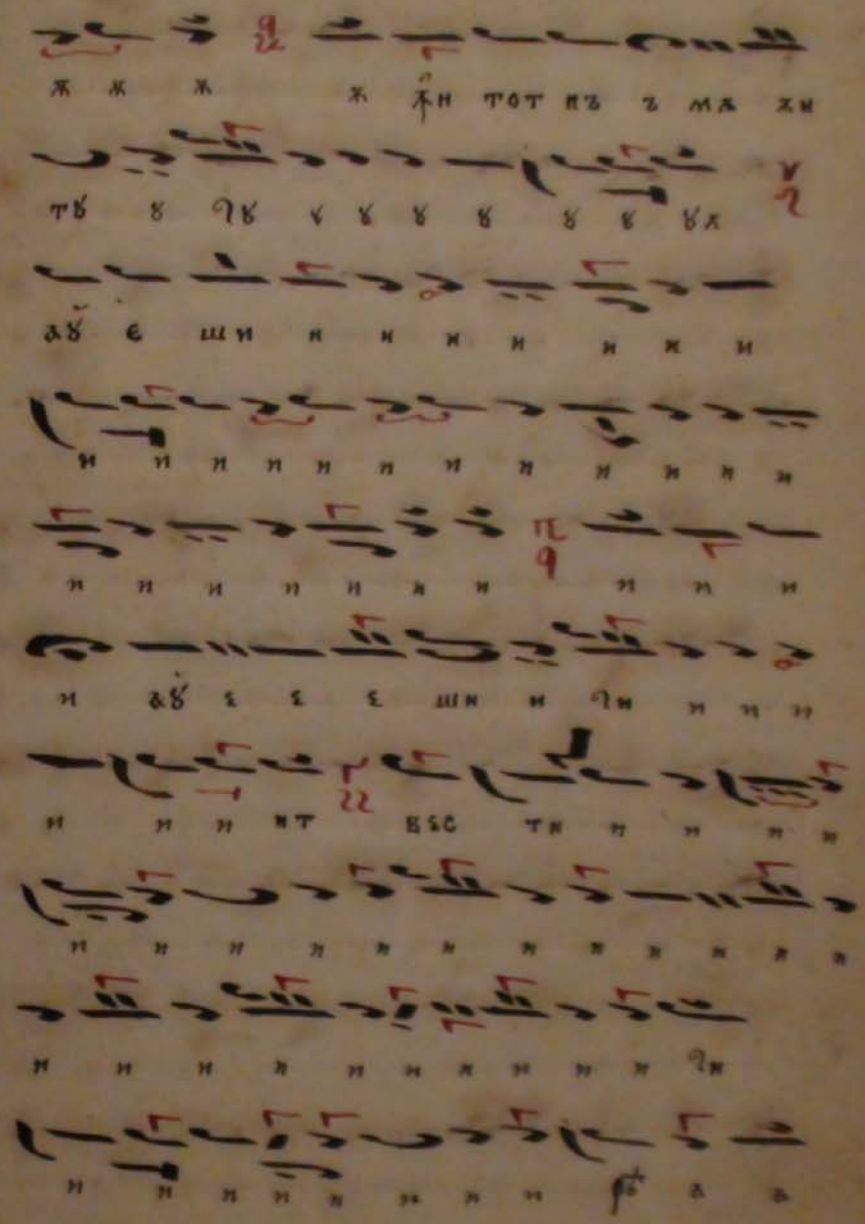 ѫ ѫ ѫ ѫ ꙟн тот пъ ъ мѫ ѫн
тꙋ ꙋ чꙋ ꙋ ꙋ ꙋ ꙋ ꙋ ꙋ ꙋл
аꙋ є ши и и и и и и и
и и и и и и и и и и и и
и и и и и и и и и и
и аꙋ ε ε ε ши и чи и и и
и и и ит вεс ти и и и и
и и и и и и и и и и и и
и и и и и и и и и и чи
и и и и и и и и рѣ а а